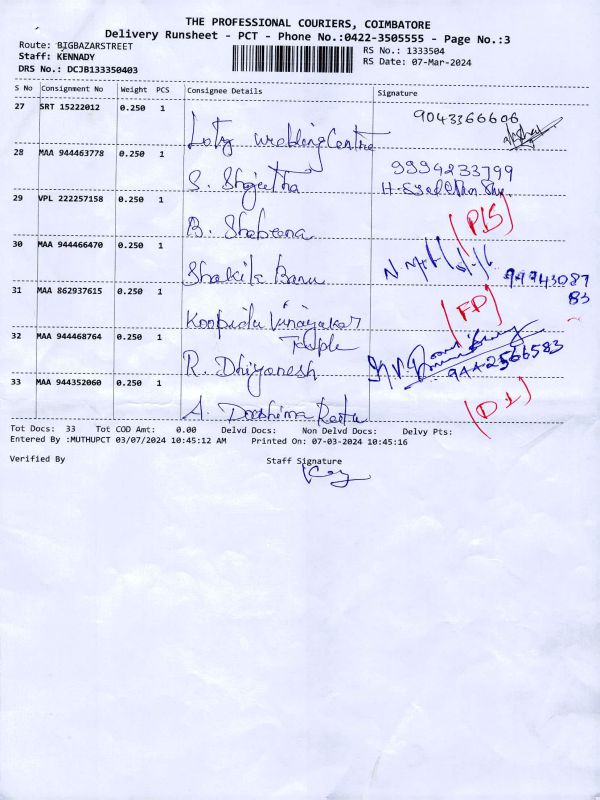 THE PROFESSIONAL COURIERS, COIMBATORE
Delivery Runsheet - PCT - Phone No.:0422-3505555 - Page No.:3
Route: BIGBAZARSTREET
RS No.: 1333504
Staff: KENNADY
RS Date: 07-Mar-2024
DRS No.: DCJB133350403
S No Consignment No Weight PCS Consignee Details Signature
27 SRT 15222012 0.250 1
9043366606
28 MAA 944463778 0.250 1
9994233799
S. Shajeetha
29 VPL 222257158 0.250 1
(P15)
B. Shabeena
30 MAA 944466470 0.250 1
Shakila Banu
9994308783
31 MAA 862937615 0.250 1
(FP)
Koopidu Vinayakar
32 MAA 944468764 0.250 1
R. Dhiyanesh
9442566583
33 MAA 944352060 0.250 1
(D1)
Tot Docs: 33 Tot COD Amt: 0.00 Delvd Docs: Non Delvd Docs: Delvy Pts:
Entered By :MUTHUPCT 03/07/2024 10:45:12 AM Printed On: 07-03-2024 10:45:16
Verified By Staff Signature